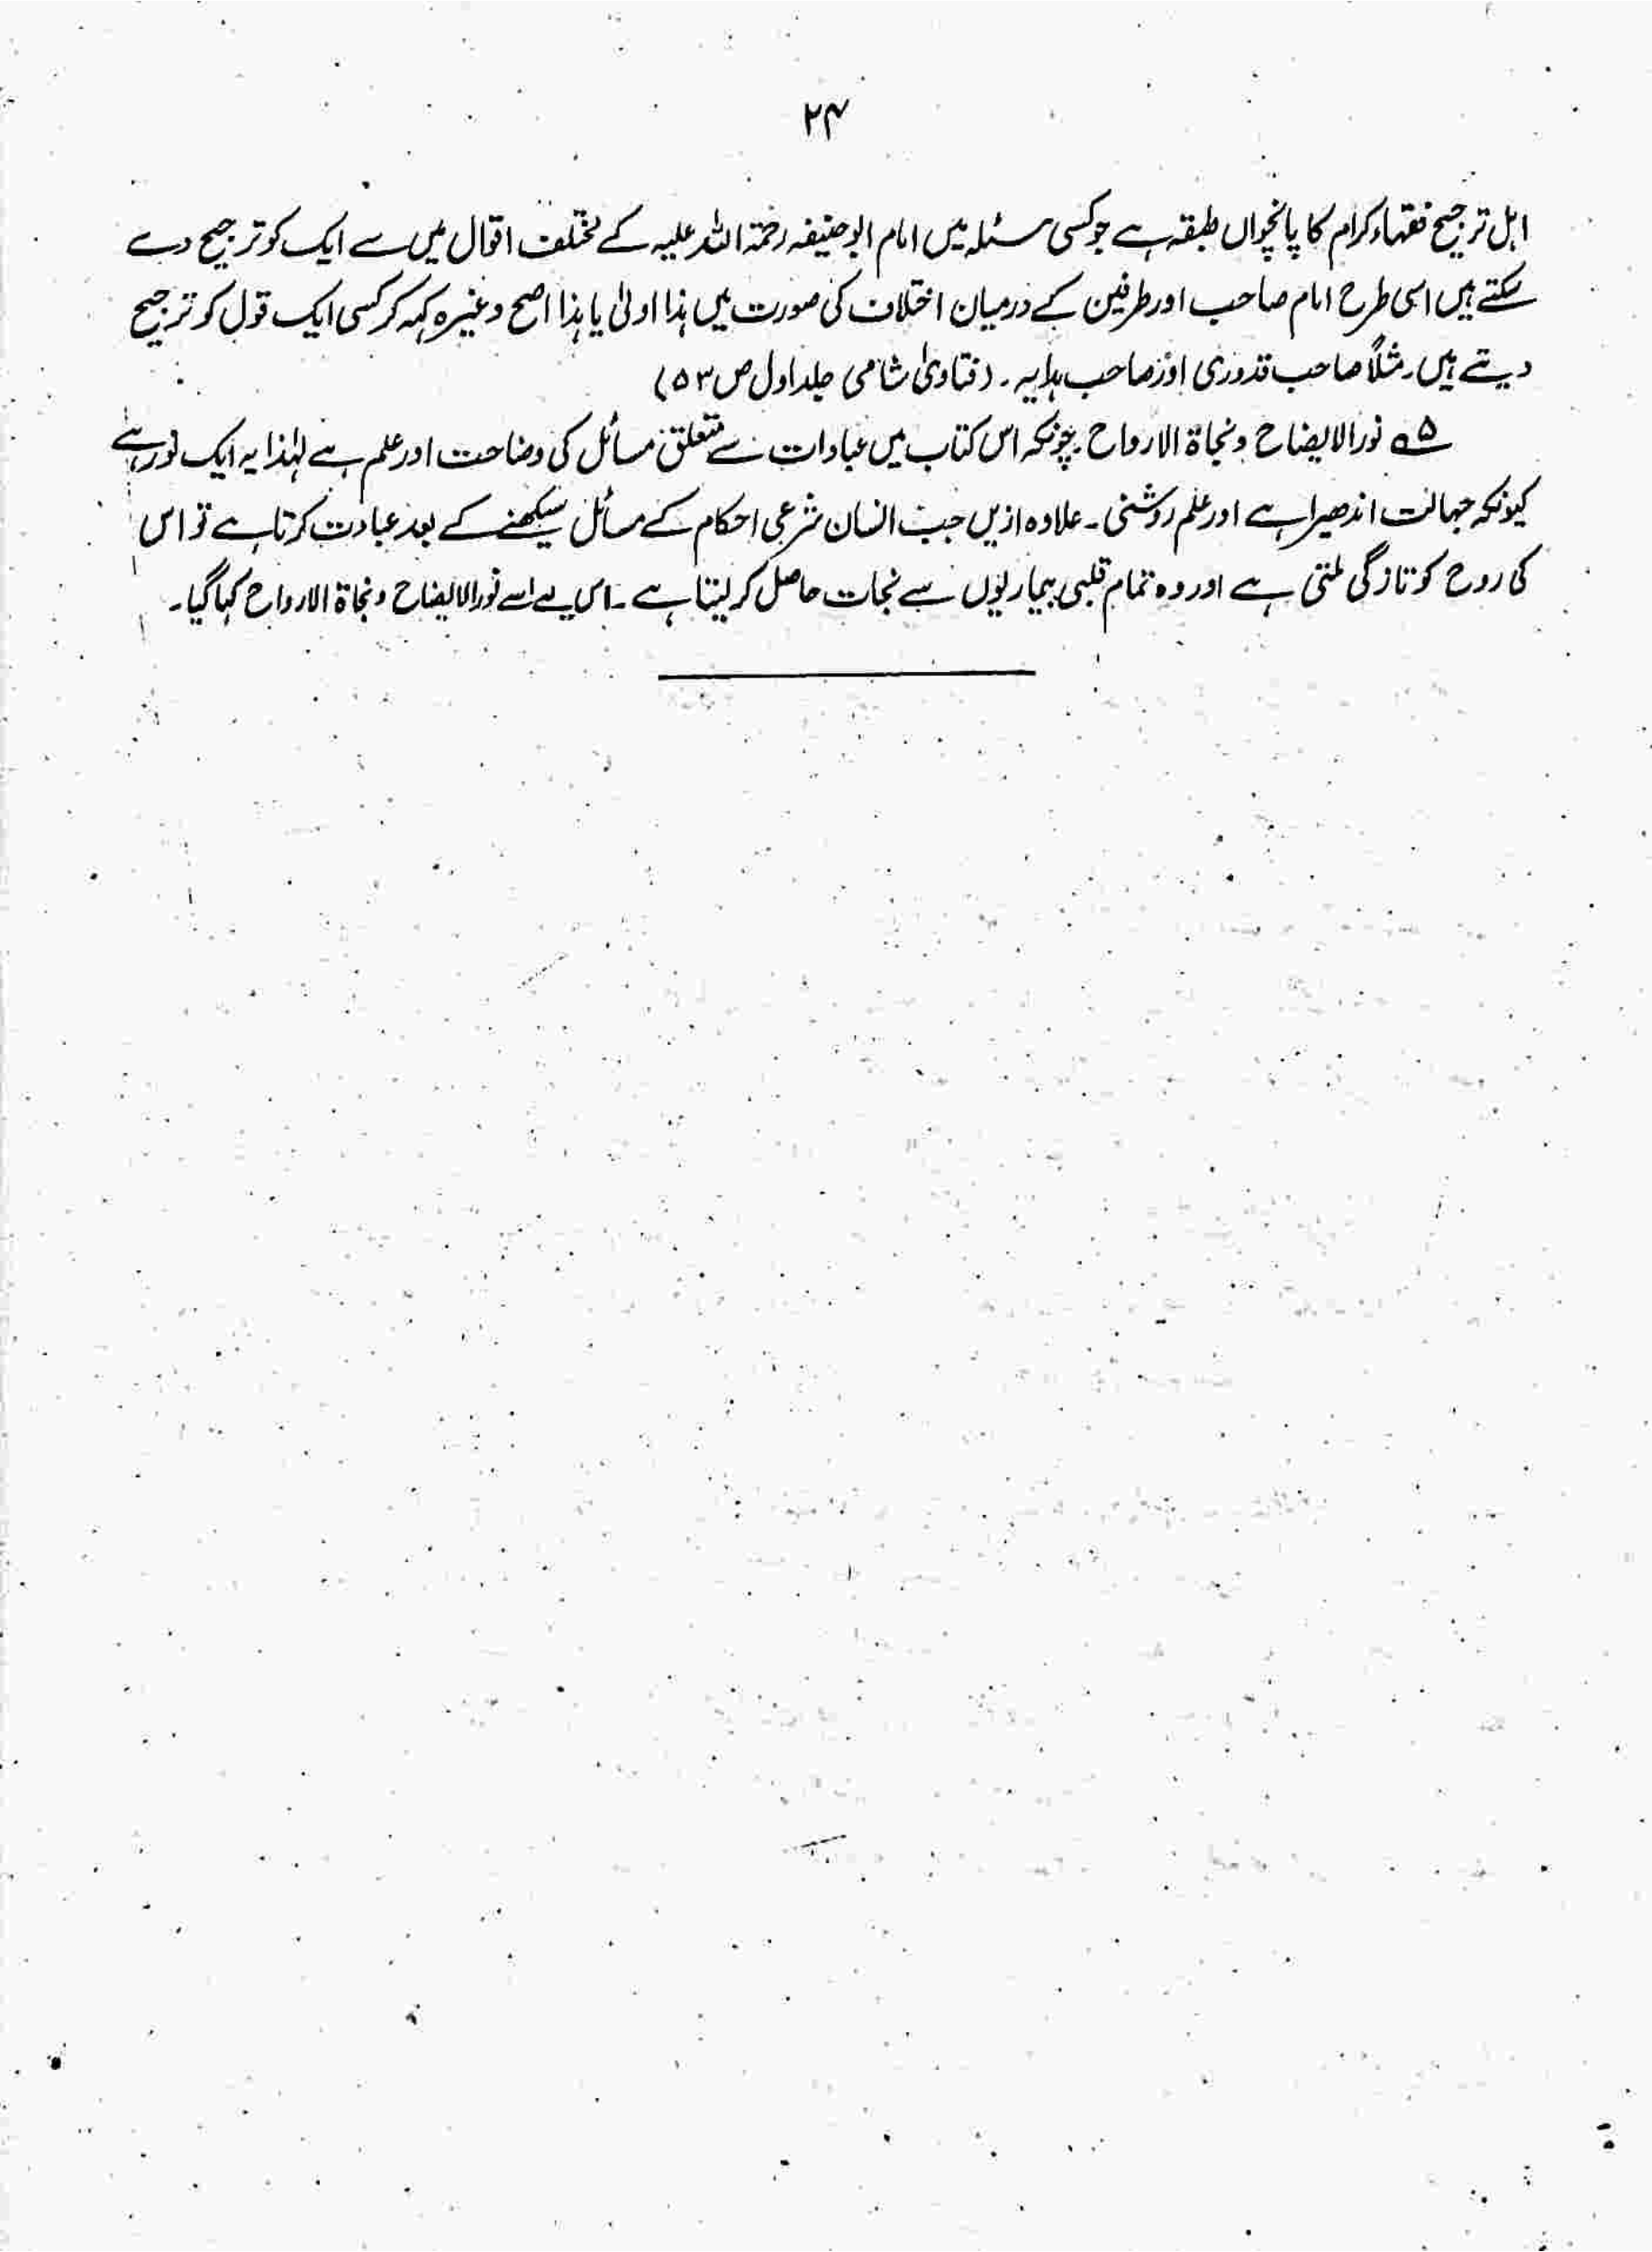 ۲۴
اہل ترجیح فقہاء کرام کا پانچواں طبقہ ہے جو کسی مسئلہ میں امام ابو حنیفہ رحمۃ اللہ علیہ کے مختلف اقوال میں سے ایک کو ترجیح دے
سکتے ہیں اسی طرح امام صاحب اور طرفین کے درمیان اختلاف کی صورت میں ہذا اولیٰ یا ہذا اصح وغیرہ کہہ کر کسی ایک قول کو ترجیح
دیتے ہیں۔ مثلاً صاحب قدوری اور صاحب ہدایہ۔ (فتاویٰ شامی جلد اول ص ۵۳)
۵ نور الایضاح و نجاۃ الارواح۔ چونکہ اس کتاب میں عبادات سے متعلق مسائل کی وضاحت اور علم ہے لہٰذا یہ ایک نور ہے
کیونکہ جہالت اندھیرا ہے اور علم روشنی۔ علاوہ ازیں جب انسان شرعی احکام کے مسائل سیکھنے کے بعد عبادت کرتا ہے تو اس
کی روح کو تازگی ملتی ہے اور وہ تمام قلبی بیماریوں سے نجات حاصل کر لیتا ہے۔ اس لیے اسے نور الایضاح و نجاۃ الارواح کہا گیا۔